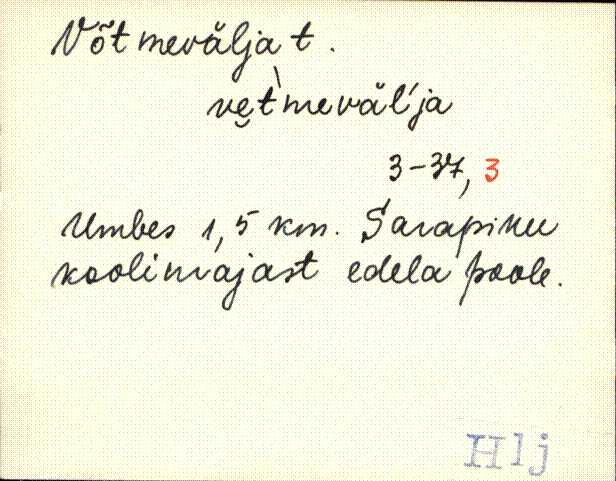 Võtmevälja t.
ve̮t̀meväl'ja
3-37, 3
Umbes 1,5 km. Sarapiku
koolimajast edela poole.
Hlj